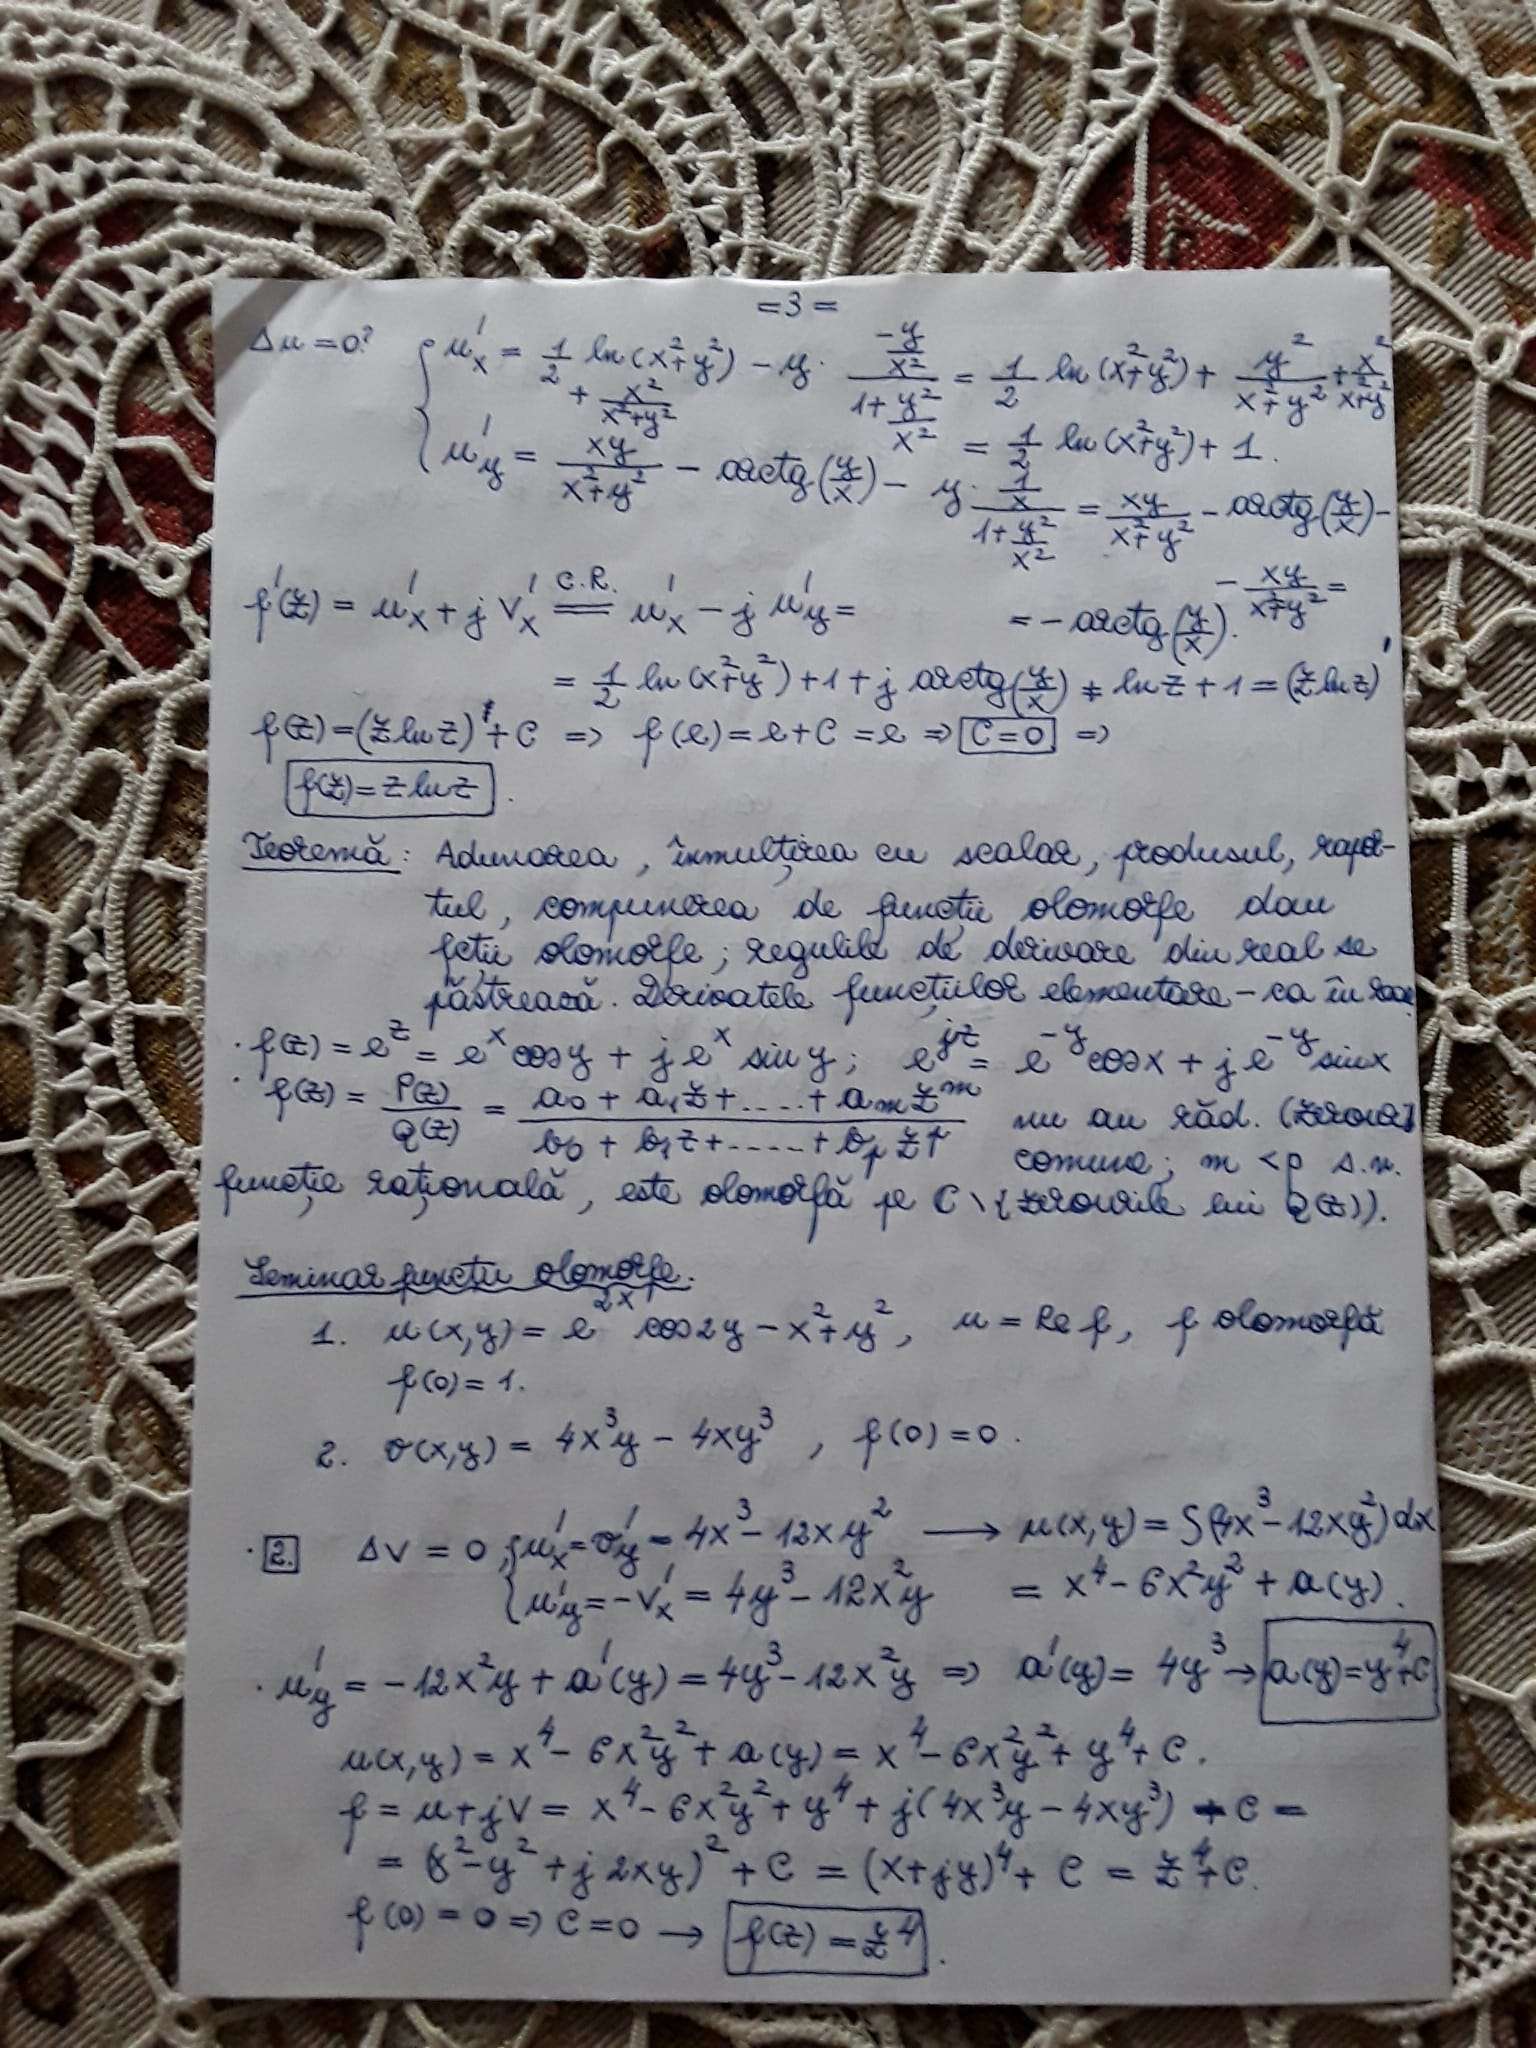 =3=
Δu=0? { u'x = 1/2 ln(x²+y²) - y · (-y/x²)/(1+y²/x²) + x²/(x²+y²) = 1/2 ln(x²+y²) + y²/(x²+y²) + x²/(x²+y²)
= 1/2 ln(x²+y²) + 1.
u'y = xy/(x²+y²) - arctg(y/x) - y · (1/x)/(1+y²/x²) = xy/(x²+y²) - arctg(y/x) -
- xy/(x²+y²) =
= - arctg(y/x).
f'(z) = u'x + j v'x =(C.R.) u'x - j u'y =
= 1/2 ln(x²+y²) + 1 + j arctg(y/x) = ln z + 1 = (z ln z)'
f(z) = (z ln z) + C => f(e) = e + C = e => C=0 =>
f(z) = z ln z .
Teoremă: Adunarea, înmulțirea cu scalar, produsul, rapor-
tul, compunerea de funcții olomorfe dau
fcții olomorfe; regulile de derivare din real se
păstrează. Derivatele funcțiilor elementare - ca în
· f(z) = e^z = e^x cos y + j e^x sin y; e^jz = e^-y cos x + j e^-y sin x
· f(z) = P(z)/Q(z) = (a₀ + a₁z + .... + aₘz^m)/(b₀ + b₁z + ..... + bₚz^p) nu au răd. (zerouri)
comune; m < p s.n.
funcție rațională, este olomorfă pe C \ {zerourile lui Q(z)}.
Seminar funcții olomorfe.
1. u(x,y) = e^2x cos 2y - x² + y², u = Re f, f olomorfă
f(0) = 1.
2. v(x,y) = 4x³y - 4xy³, f(0) = 0.
· 2. Δv = 0, { u'x = v'y = 4x³ - 12xy² → u(x,y) = ∫(4x³ - 12xy²)dx
u'y = -v'x = 4y³ - 12x²y = x⁴ - 6x²y² + a(y).
· u'y = -12x²y + a'(y) = 4y³ - 12x²y => a'(y) = 4y³ → a(y) = y⁴+C
u(x,y) = x⁴ - 6x²y² + a(y) = x⁴ - 6x²y² + y⁴ + C.
f = u + jv = x⁴ - 6x²y² + y⁴ + j(4x³y - 4xy³) + C =
= (x² - y² + j 2xy)² + C = (x+jy)⁴ + C = z⁴ + C.
f(0) = 0 => C = 0 → f(z) = z⁴ .